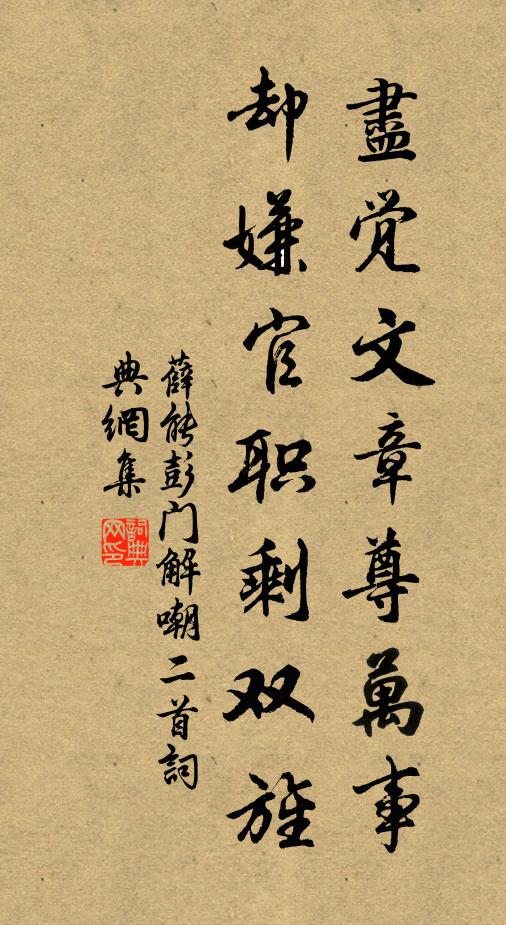 盡覺文章尊萬事
却嫌官职剩双旌
薛能彭门解嘲二首詞
典網集
詞典
网印